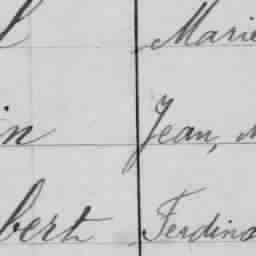 Marie
in Jean,
bert Ferdina